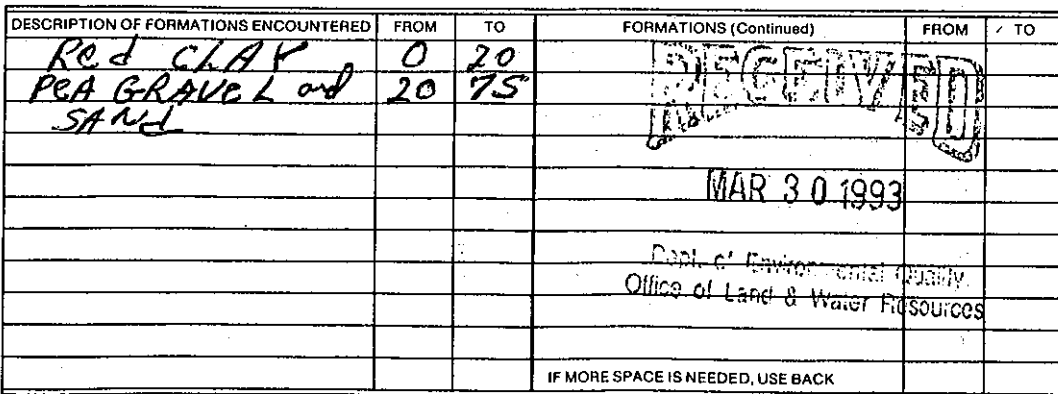 DESCRIPTION OF FORMATIONS ENCOUNTERED FROM TO FORMATIONS (Continued) FROM TO
Red CLAY 0 20
PeA GRAVeL and 20 75
SANd
RECEIVED
MAR 30 1993
Dept. of Environmental Quality
Office of Land & Water Resources
IF MORE SPACE IS NEEDED, USE BACK